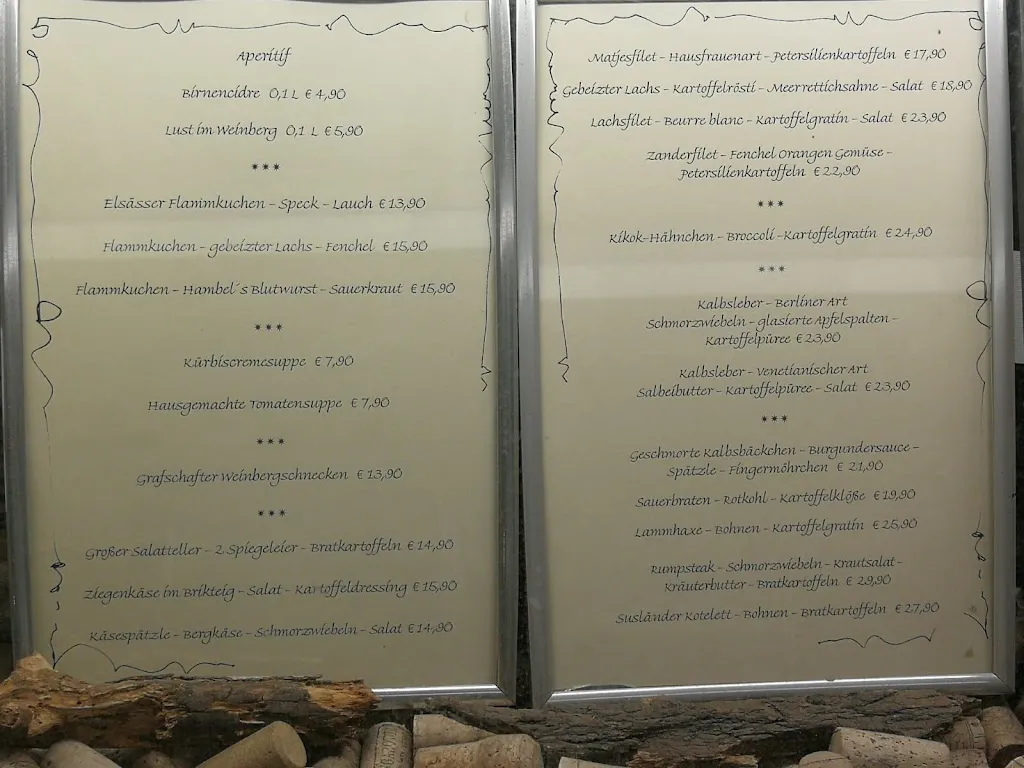 Aperitif
Birnencidre 0,1 L € 4,90
Lust im Weinberg 0,1 L € 5,90
***
Elsässer Flammkuchen - Speck - Lauch € 13,90
Flammkuchen - gebeizter Lachs - Fenchel € 15,90
Flammkuchen - Hambel´s Blutwurst - Sauerkraut € 15,90
***
Kürbiscremesuppe € 7,90
Hausgemachte Tomatensuppe € 7,90
***
Grafschafter Weinbergschnecken € 13,90
***
Großer Salatteller - 2 Spiegeleier - Bratkartoffeln € 14,90
Ziegenkäse im Brikteig - Salat - Kartoffeldressing € 15,90
Käsespätzle - Bergkäse - Schmorzwiebeln - Salat € 14,90
Matjesfilet - Hausfrauenart - Petersilienkartoffeln € 17,90
Gebeizter Lachs - Kartoffelrösti - Meerrettichsahne - Salat € 18,90
Lachsfilet - Beurre blanc - Kartoffelgratin - Salat € 23,90
Zanderfilet - Fenchel Orangen Gemüse -
Petersilienkartoffeln € 22,90
***
Kikok-Hähnchen - Broccoli - Kartoffelgratin € 24,90
***
Kalbsleber - Berliner Art
Schmorzwiebeln - glasierte Apfelspalten -
Kartoffelpüree € 23,90
Kalbsleber - Venetianischer Art
Salbeibutter - Kartoffelpüree - Salat € 23,90
***
Geschmorte Kalbsbäckchen - Burgundersauce -
Spätzle - Fingermöhrchen € 21,90
Sauerbraten - Rotkohl - Kartoffelklöße € 19,90
Lammhaxe - Bohnen - Kartoffelgratin € 25,90
Rumpsteak - Schmorzwiebeln - Krautsalat -
Kräuterbutter - Bratkartoffeln € 29,90
Susländer Kotelett - Bohnen - Bratkartoffeln € 27,90